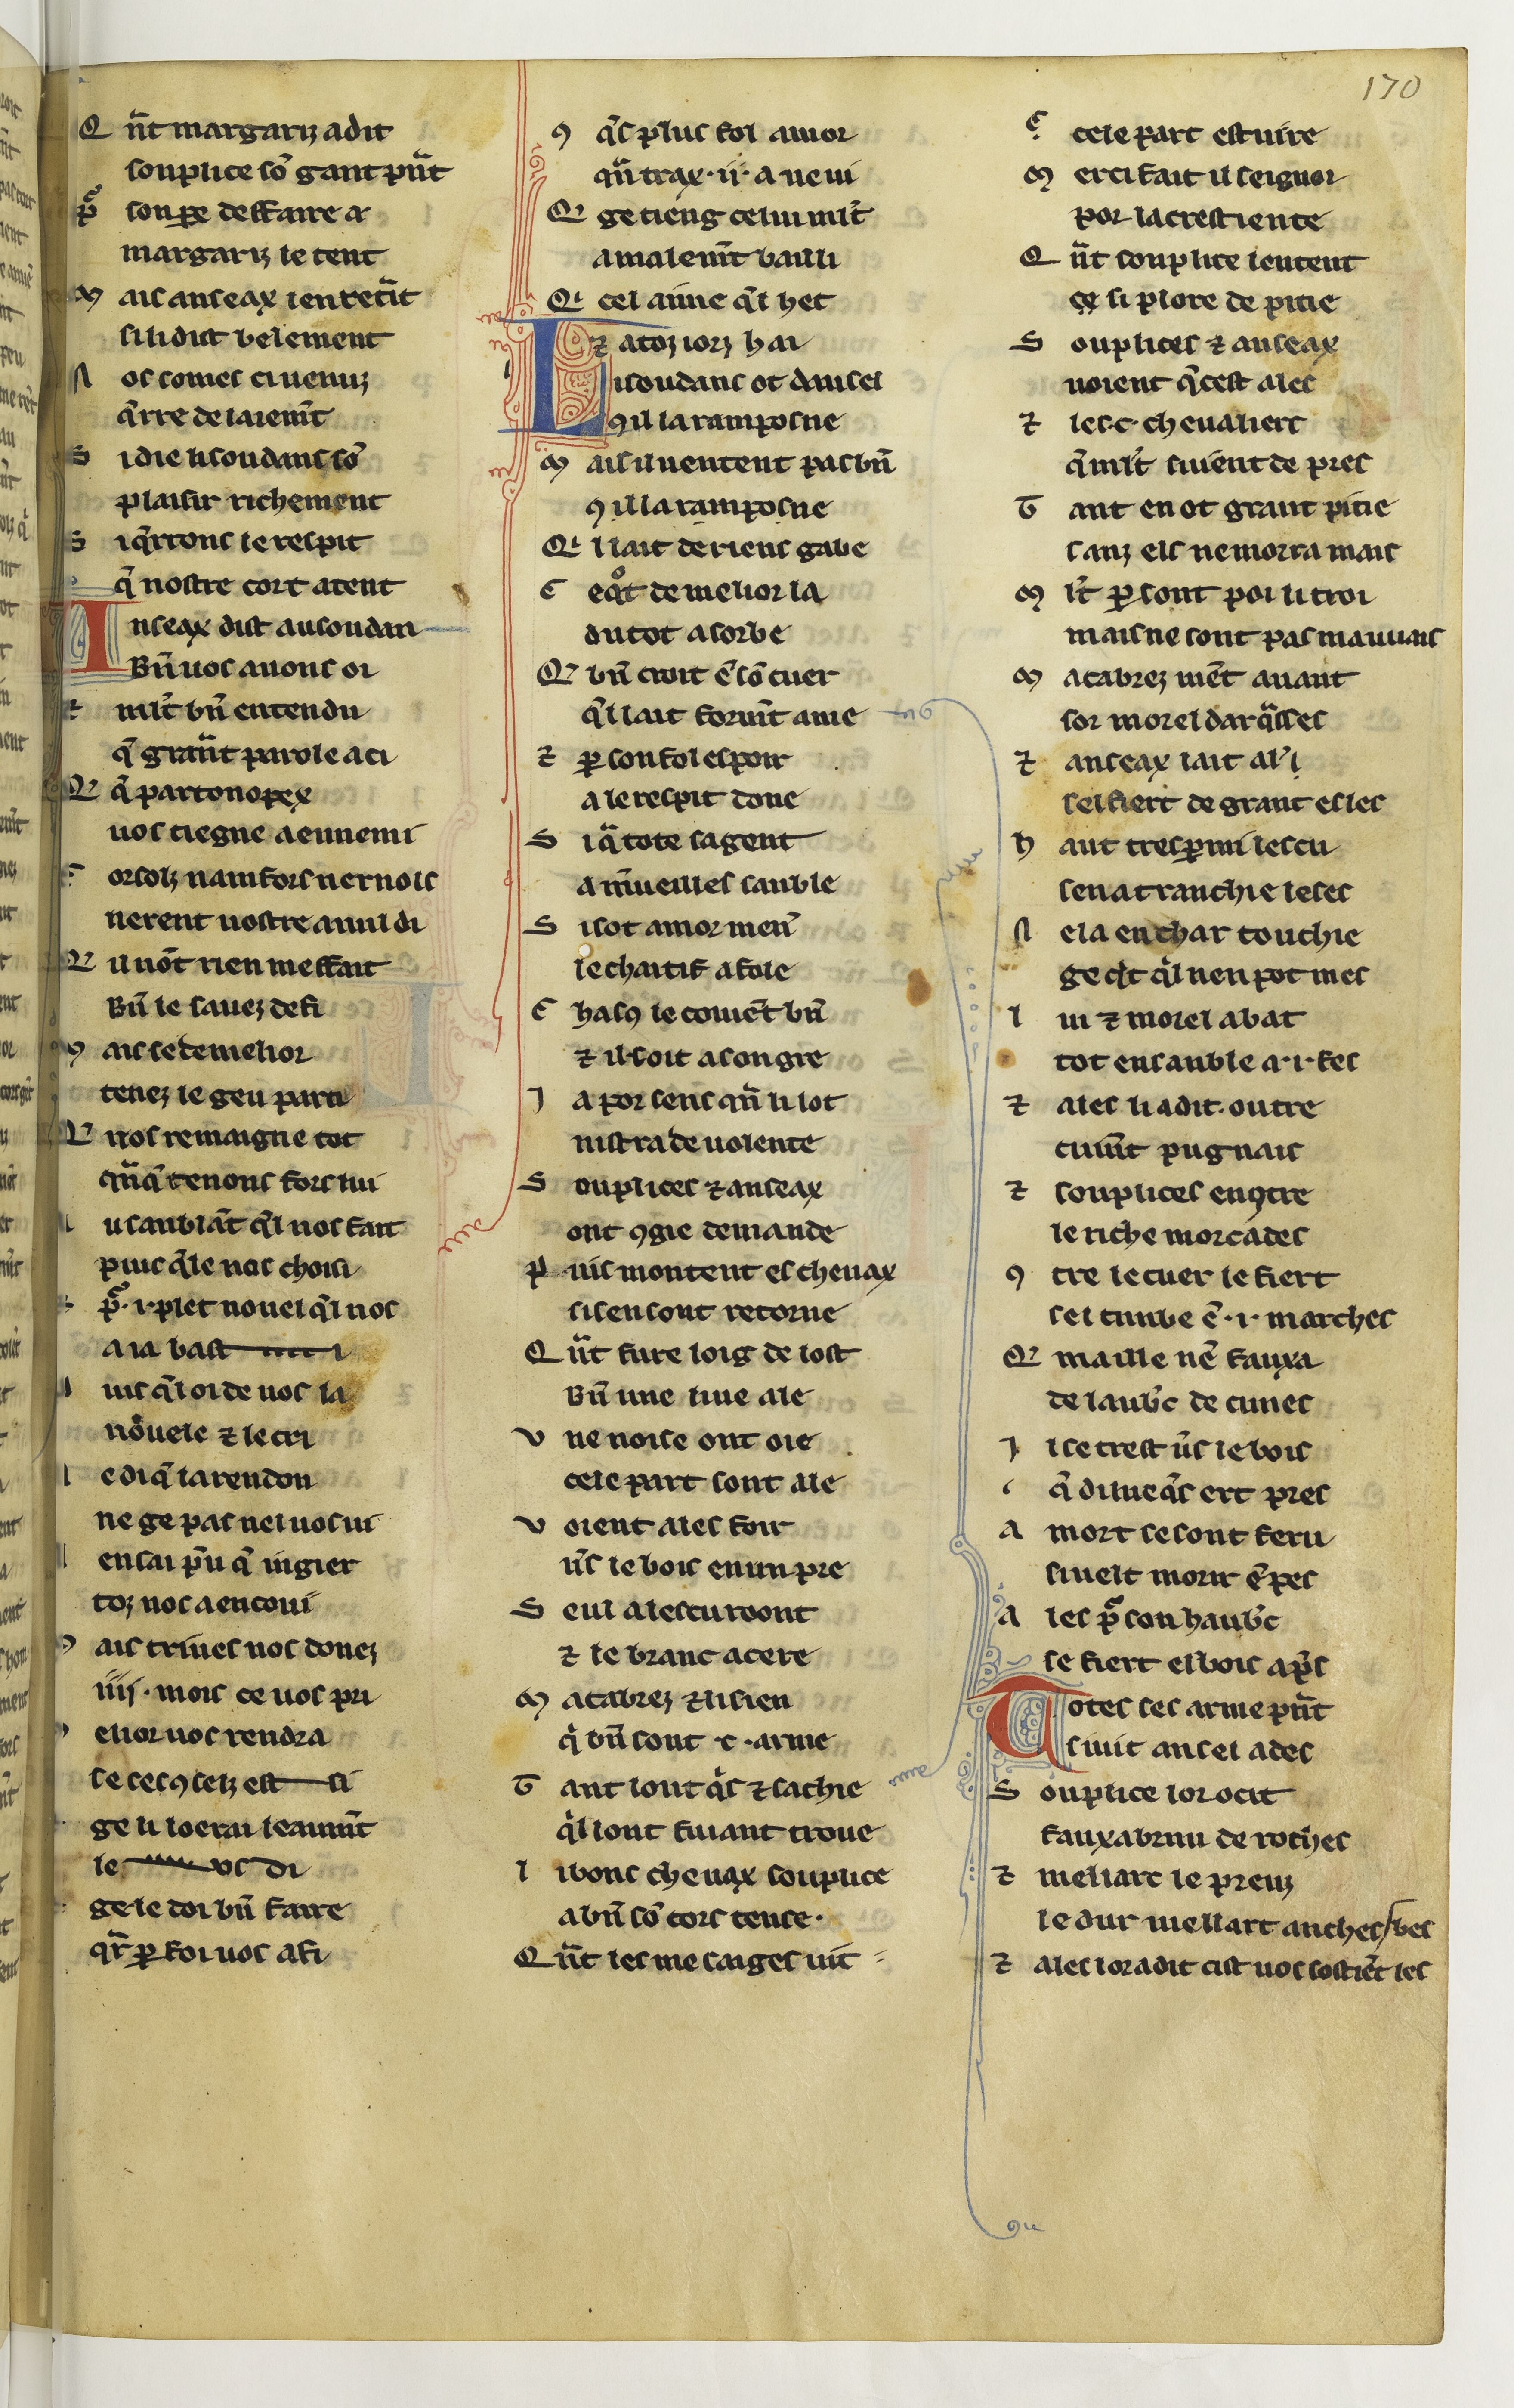 170
Q n̄t margariz a dit
souplice sō gant p̄nt
p̄ son pe deffaire et
margariz le tent
M ais anseax lentent
si li dist belement
N os somes ci venuz
q̄rre delaiem̄t
S i die li soudans sō
plaisir richement
S i q̄rrons le respit
q̄ nostre cort atent
Anseax dist au soudan
Bn̄ vos avons oi
⁊ mlt̄ bn̄ entendu
q̄ grānt parole a ci
Q q̄ partonopex
vos tiegne a ennemi
il nōt rien meffait
Bn̄ le savez de fi
M ais se de melior
tenez le geu parti
Q vos remaigne tot
qn̄q̄ tenons fors lui
puis q̄le nos choisi
p̄ .i. plet novel q̄l vos
a ia bast i
uis q̄l oi de vos la
novele ⁊ le cri
e di q̄ la rendon
ne ge pas nel vos vi
en sai p̄u q̄ ingier
toz nos a encovi
M ais trives nos donez
iiii. mois ce vos pri
M elior vos rendra
se ses ɔselz est si
ge li loerai leaum̄t
le vos di
ge le doi bn̄ faire
qr̄ p foi vos afi
M q̄s plus fol amor
qn̄ trax .ii. a ne vi
Q ge tieng celui mlt̄
a malem̄t bailli
Q i cel aime q̄l het
⁊ a toz iorz hai
Li soudans ot dansel
ɔ il la ramposne
M ais il nentent pas bn̄
ɔ il la ramposne
Q i l lait de riens gabe
C e qͦt de melior la
du tot asorbe
Q bn̄ croit ē sō cuer
q̄l lait form̄t ame
⁊ p son fol espoir
a le respit done
S i q̄ tote sa gent
a m̄veilles sanble
S i sot amor men̄
le chaitif afole
C hascɔ le covēt bn̄
⁊ il soit a son gre
I a por sens qn̄ li lot
nistra de volente
S ouplices ⁊ anseax
ont ɔgie demande
P uis montent es chevax
si sen sont retorne
Q n̄t fure loig de lost
Bn̄ une live ale
V ne noise ont oie
cele part sont ale
V oient ales foir
v̄s le bois en un pre
S eul a lescu roont
⁊ le branc acere
M atabrez ⁊ li sien
q̄ bn̄ sont .c. arme
T ant lont q̄s ⁊ sachie
q̄l lont fuiant trove
L i bons chevax souplice
a bn̄ sō cors tense.
Q n̄t les mesaiges vit
C cele part est vire
M erci fait il seignor
por la crestiente
Q n̄t souplice lentent
ce si plore de pitie
S ouplices ⁊ anseax
voient q̄ cest ales
⁊ les .c. chevaliers
q̄ mlt̄ sivent de pres
T ant en ot grant pitie
sanz els ne morra mais
M lt̄ p sont poi li troi
mais ne sont pas mauvais
M atabrez viēt avant
sor morel darq̄sses
⁊ anseax lait al'i
sel fiert de grant esles
H aut tres p mi lescu
sen a tranchie les es
N el a en char touchie
ge cit q̄l nen pot mes
L ui ⁊ morel abat
tot ensanble a .i. fes
⁊ ales li a dit. outre
cuiv̄t pugnais
⁊ souplices enɔtre
le riche morcades
ɔ tre le cuer le fiert
sel tunbe ē .i. marches
Q maille nē fauxa
de laub̄c de cunes
I l se trest v̄s le bois
q̄ dilueq̄s ert pres
A mort se sont feru
sivelt morir ē pes
A les p̄ son haub̄c
se fiert el bois ap̄s
Totes ses arme p̄nt
Sivit ansel ades
S ouplice lor ocit
fauxabruu de roches
⁊ meliarc le preuz
⁊ ales lor a dit cist vos sostiēt les